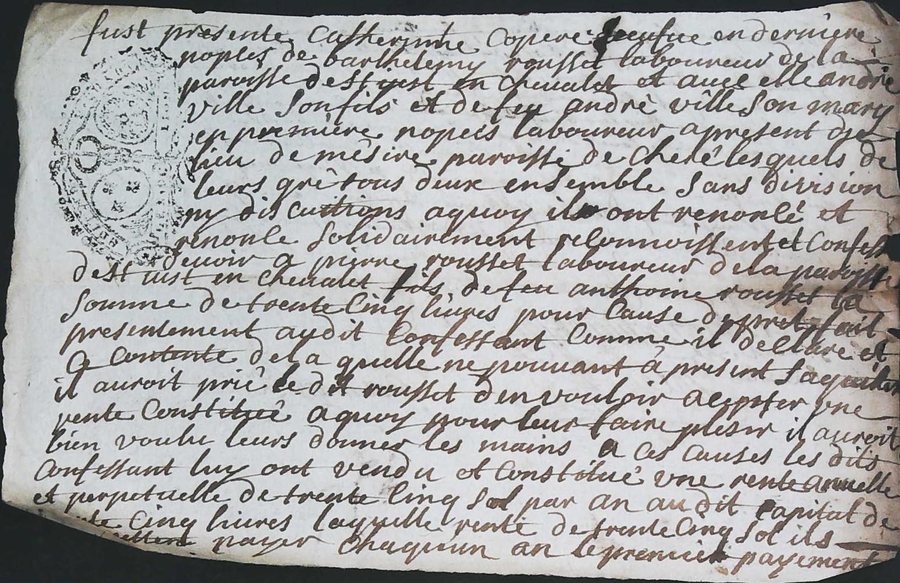 fust presente Catherinne Copere veufue en derniere
nopses de barthelemy rousset laboureur de la
paroisse de st just en chevalet et avec elle andre
ville son fils et de feu andré ville son mary
en permiere nopces laboureur apresent de
lieu de mésire paroisse de cheré lesquels de
leurs gré tous deux ensemble sans division
ny discuttions aquoy ils ont renonlé et
renonle solidairement relonnoissent et Confess
devoir a pierre rousset laboureur de la paroisse
de st just en chevalet fils de feu anthoine rousset la
somme de trente Cinq livres pour Cause de pret fait
presentement audit Confessant Comme il declare et
a Contente de la quelle ne pouvant à present saquiter
il auroit prié le dit rousset den vouloir accpter vne
rente Constitué aquoy pour leur faire plesir il auroit
bien voulu leurs donner les mains a ces causes les dits
Confessant luy ont vendu et Constitué vne rente annuelle
et perpetuelle de trente Cinq sol par an au dit Capital de
Cinq livres laquelle rente de trente Cinq sol ils
payer chaquun an le premier payement